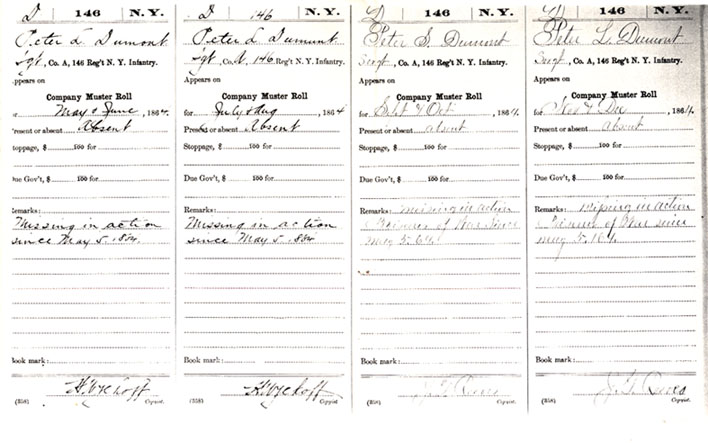 D 146 N. Y.
Peter L Dumont
Sgt, Co. A, 146 Reg't N. Y. Infantry.
Appears on
Company Muster Roll
May & June, 1864.
Present or absent Absent
Stoppage, $ 100 for
Due Gov't, $ 100 for
Remarks:
Missing in action
since May 5, 1864
Book mark:
H. Wyckoff
(358) Copyist.
D 146 N. Y.
Peter L Dumont
Sgt, Co. A, 146 Reg't N. Y. Infantry.
Appears on
Company Muster Roll
for July & Aug, 1864
Present or absent Absent
Stoppage, $ 100 for
Due Gov't, $ 100 for
Remarks:
Missing in action
since May 5, 1864
Book mark:
H. Wyckoff
(358) Copyist.
D 146 N. Y.
Peter S. Dumont
Sergt, Co. A, 146 Reg't N. Y. Infantry.
Appears on
Company Muster Roll
for Sept & Oct, 1864.
Present or absent absent
Stoppage, $ 100 for
Due Gov't, $ 100 for
Remarks: missing in action
Prisoner of War since
may 5. 64
Book mark:
(358) Copyist.
D 146 N. Y.
Peter L. Dumont
Sergt, Co. A, 146 Reg't N. Y. Infantry.
Appears on
Company Muster Roll
for Nov & Dec, 1864.
Present or absent absent
Stoppage, $ 100 for
Due Gov't, $ 100 for
Remarks: missing in action
Prisoner of War since
may 5.
Book mark:
(358) Copyist.